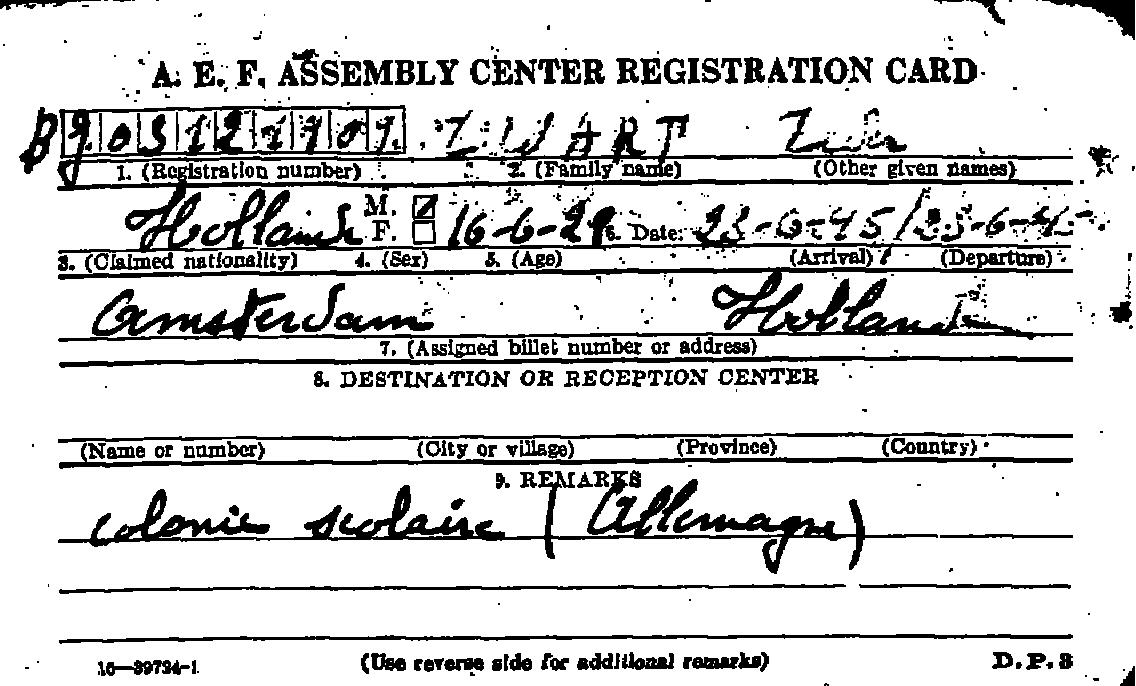 A. E. F. ASSEMBLY CENTER REGISTRATION CARD
ZWART
1. (Registration number) 2. (Family name) (Other given names)
Holland M. F. 16-6-29 6. Date: 23-6-45 / 23-6-45
3. (Claimed nationality) 4. (Sex) 5. (Age) (Arrival) (Departure)
Amsterdam Holland
7. (Assigned billet number or address)
8. DESTINATION OR RECEPTION CENTER
(Name or number) (City or village) (Province) (Country)
9. REMARKS
colonie scolaire (Allemagne)
16—39724-1 (Use reverse side for additional remarks) D.P.3